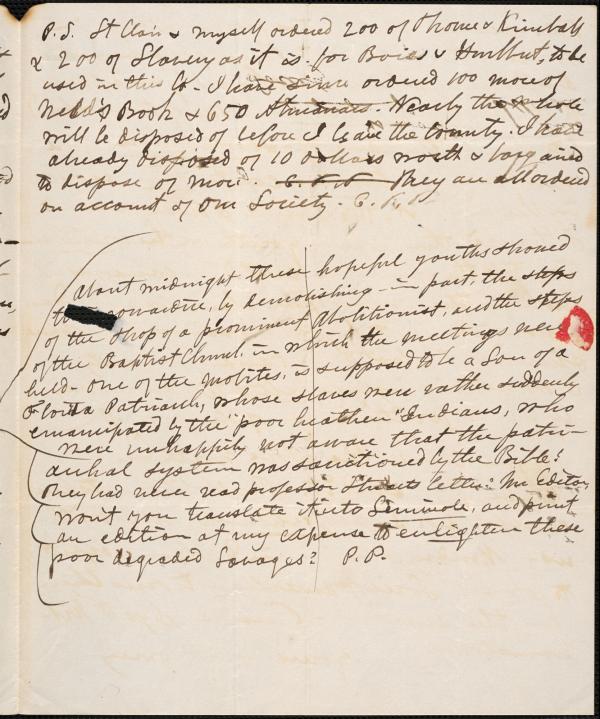 P.S. St Clair & myself ordered 200 of Thome & Kimball
& 200 of Slavery as it is for Boies & Hurlbut, to be
used in this Co - I have since ordered 100 more of
Weld's Book & 650 Almanacs. Nearly the whole
will be disposed of before I leave the County. I have
already disposed of 10 Dollars worth & bargained
to dispose of more. They are all ordered
on account of our Society. C.
About midnight these hopeful youths showed
cowardice, by demolishing - in part, the steps
of the Shop of a prominent Abolitionist, and the steps
of the Baptist Church in which the meetings were
held - One of the mobites, is supposed to be a Son of a
Florida Patriarch, whose slaves were rather suddenly
emancipated by the "poor heathen" Indians, who
were unhappily not aware that the patri-
archal system was sanctioned by the Bible!
They had never read professor Stuarts letter! Mr Editor,
wont you translate it into Seminole, and print
an edition at my expense to enlighten these
poor degraded Savages? P.P.